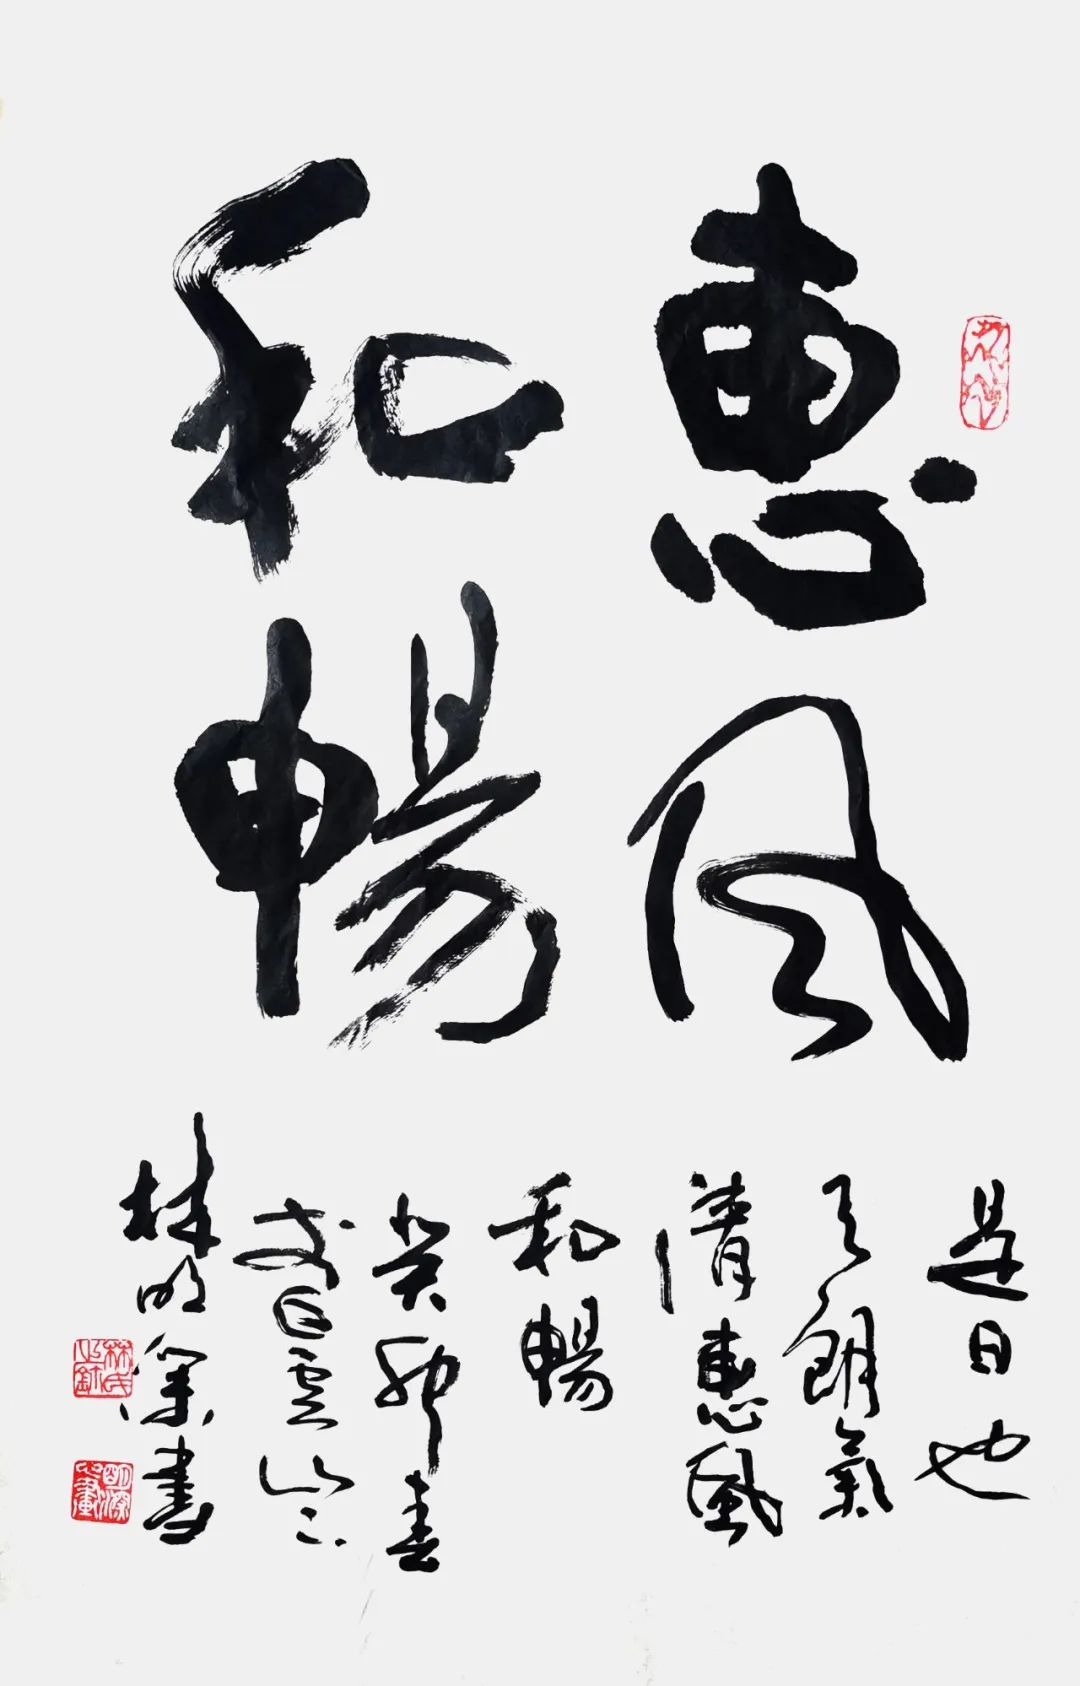 惠风
和暢
是日也
天朗氣
清惠風
和暢
癸卯春
白雲山
林明深書